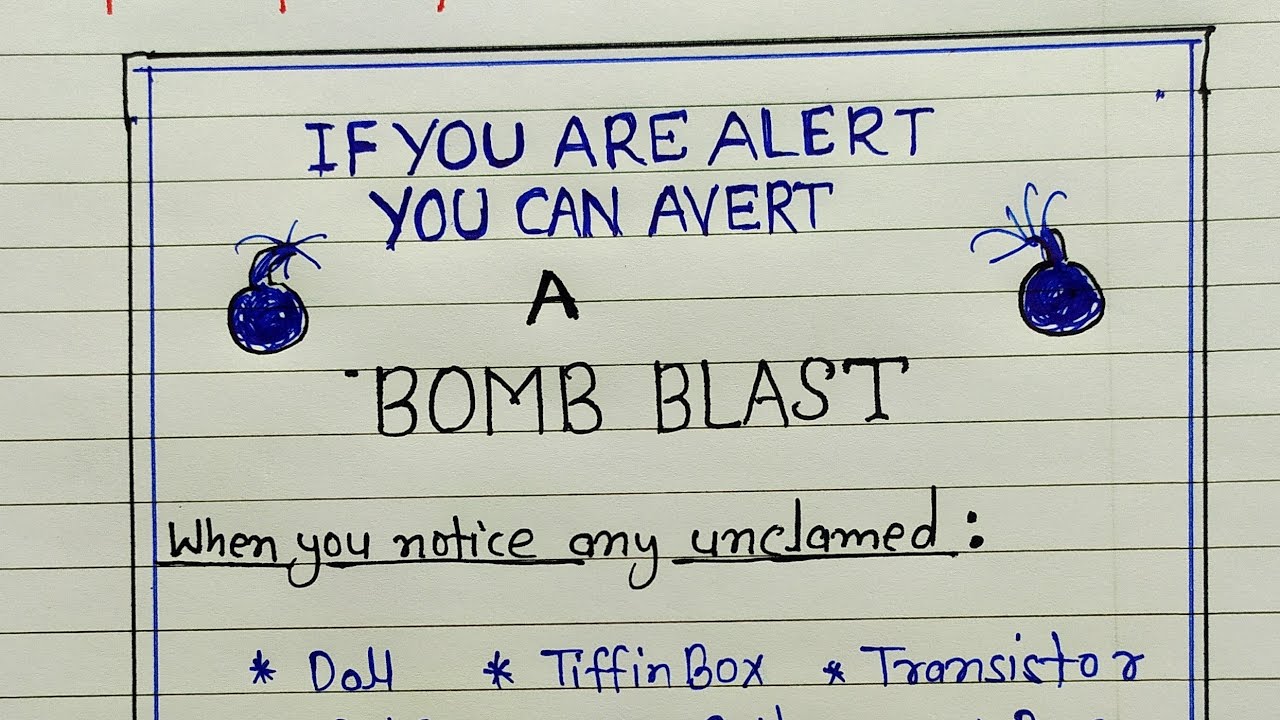 IF YOU ARE ALERT
YOU CAN AVERT
A
BOMB BLAST
When you notice any unclamed :
* Doll * Tiffin Box * Transistor